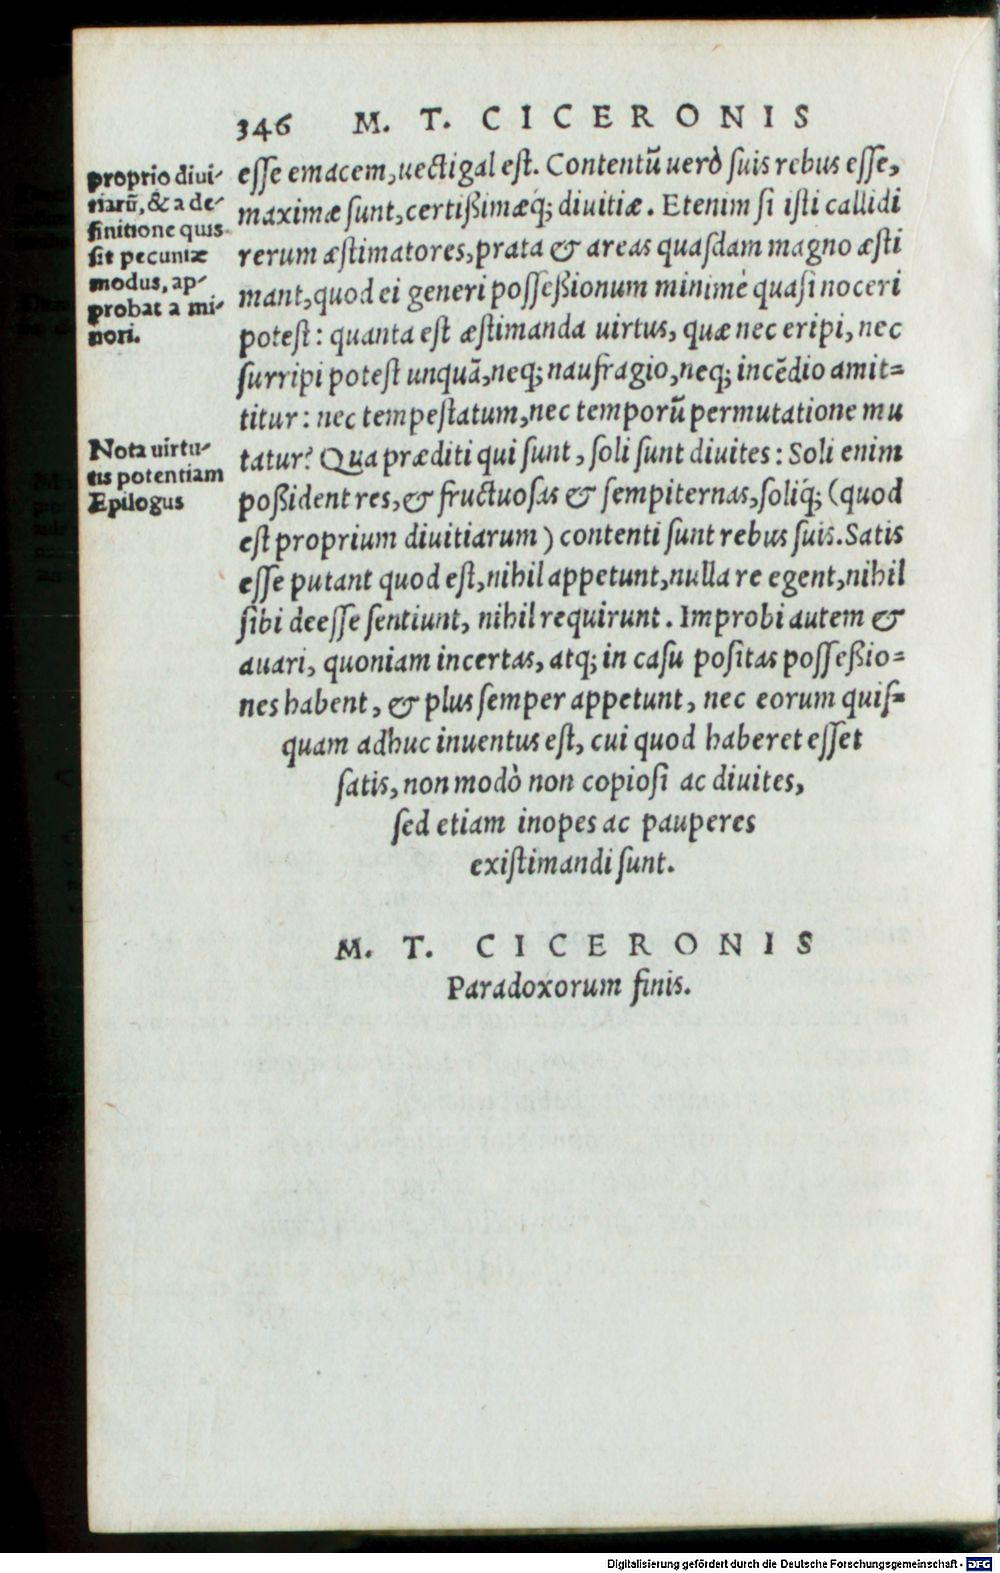 346 M. T. CICERONIS
proprio diui-
tiarū, & a de-
finitione quis
sit pecuniæ
modus, ap-
probat a mi-
nori.
Nota uirtu-
tis potentiam
Epilogus
esse emacem, uectigal est. Contentū uerò suis rebus esse,
maximæ sunt, certißimæq́; diuitiæ. Etenim si isti callidi
rerum æstimatores, prata & areas quasdam magno æsti
mant, quod ei generi possessionum minimè quasi noceri
potest: quanta est æstimanda uirtus, quæ nec eripi, nec
surripi potest unquā, neq; naufragio, neq; incēdio amit=
titur: nec tempestatum, nec temporū permutatione mu
tatur? Qua præditi qui sunt, soli sunt diuites: Soli enim
poßident res, & fructuosas & sempiternas, soliq́; (quod
est proprium diuitiarum) contenti sunt rebus suis. Satis
esse putant quod est, nihil appetunt, nulla re egent, nihil
sibi deesse sentiunt, nihil requirunt. Improbi autem &
auari, quoniam incertas, atq; in casu positas posseßio=
nes habent, & plus semper appetunt, nec eorum quis=
quam adhuc inuentus est, cui quod haberet esset
satis, non modò non copiosi ac diuites,
sed etiam inopes ac pauperes
existimandi sunt.
M. T. CICERONIS
Paradoxorum finis.
Digitalisierung gefördert durch die Deutsche Forschungsgemeinschaft - DFG